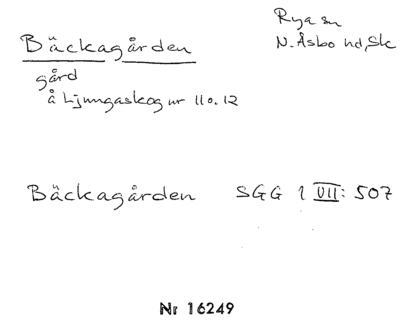 Bäckagården
Rya sn
N. Åsbo hd, Sk
gård
å Ljungaskog nr 11 o. 12
Bäckagården SGG 1 VII: 507
Nr 16249